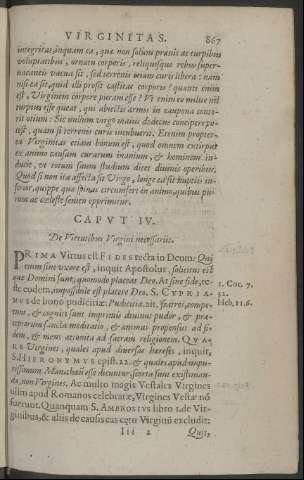 VIRGINITAS. 867
integritas, inquam ea, quæ non solum prauis ac turpibus
voluptatibus, ornatu corporis, reliquisque rebus super-
uacaneis vacua sit, sed terrenis etiam curis libera: nam
nisi ea sit, quid illi prosit castitas corporis? quanti enim
est, Virginem corpore puram esse? Vt enim ex milite nil
turpius esse queat, qui abiectis armis in caupona conte-
rit otium: Sic nullum virgo maius dedecus concipere po-
test, quam si terrenis curis incubuerit. Etenim propter-
ea Virginitas etiam bonum est, quod omnem excirpat
ex animo causam curarum inanium, & hominem in-
ducit, vt totum suum studium diuer diuinis operibus.
Quod si non ita affecta sit Virgo, longe ea sit nuptiis in-
ferior, quippe quæ spinas circumfert in animo, quibus pu-
rum ac cæleste semen opprimitur.
CAPVT IV.
De Virtutibus Virgini necessariis.
PRIMA Virtus est FIDES recta in Deum: Qui
enim sine vxore est, inquit Apostolus, solicitus est
quæ Domini sunt, quomodo placeat Deo. At sine fide, te-
ste eodem, impossibile est placere Deo. S. CYPRIA-
NVS de bono pudicitiæ: Pudicitiæ, ait, spatres, compe-
tens, & cognitum sunt imprimis diuinus pudor, & præ-
ceptorum sancta meditatio, & animus propensus ad fi-
dem, & mens attonita ad sacram religionem. QVA-
RE Virgines, quales apud diuersas hæreses, inquit,
S. HIERONYMVS epist. 22. & quales apud impu-
rissimum Manichæū esse dicuntur, scorta sunt existiman-
da, non Virgines. Ac multo magis Vestales Virgines
olim apud Romanos celebratæ, Virgines Vestæ nō
fuerunt. Quanquam S. AMBROSIVS libro 1. de Vir-
ginibus, & aliis de causis eas cętu Virginū excludit:
Iii 2 Quis,
1. Cor. 7.
32.
Heb. 11. 6.